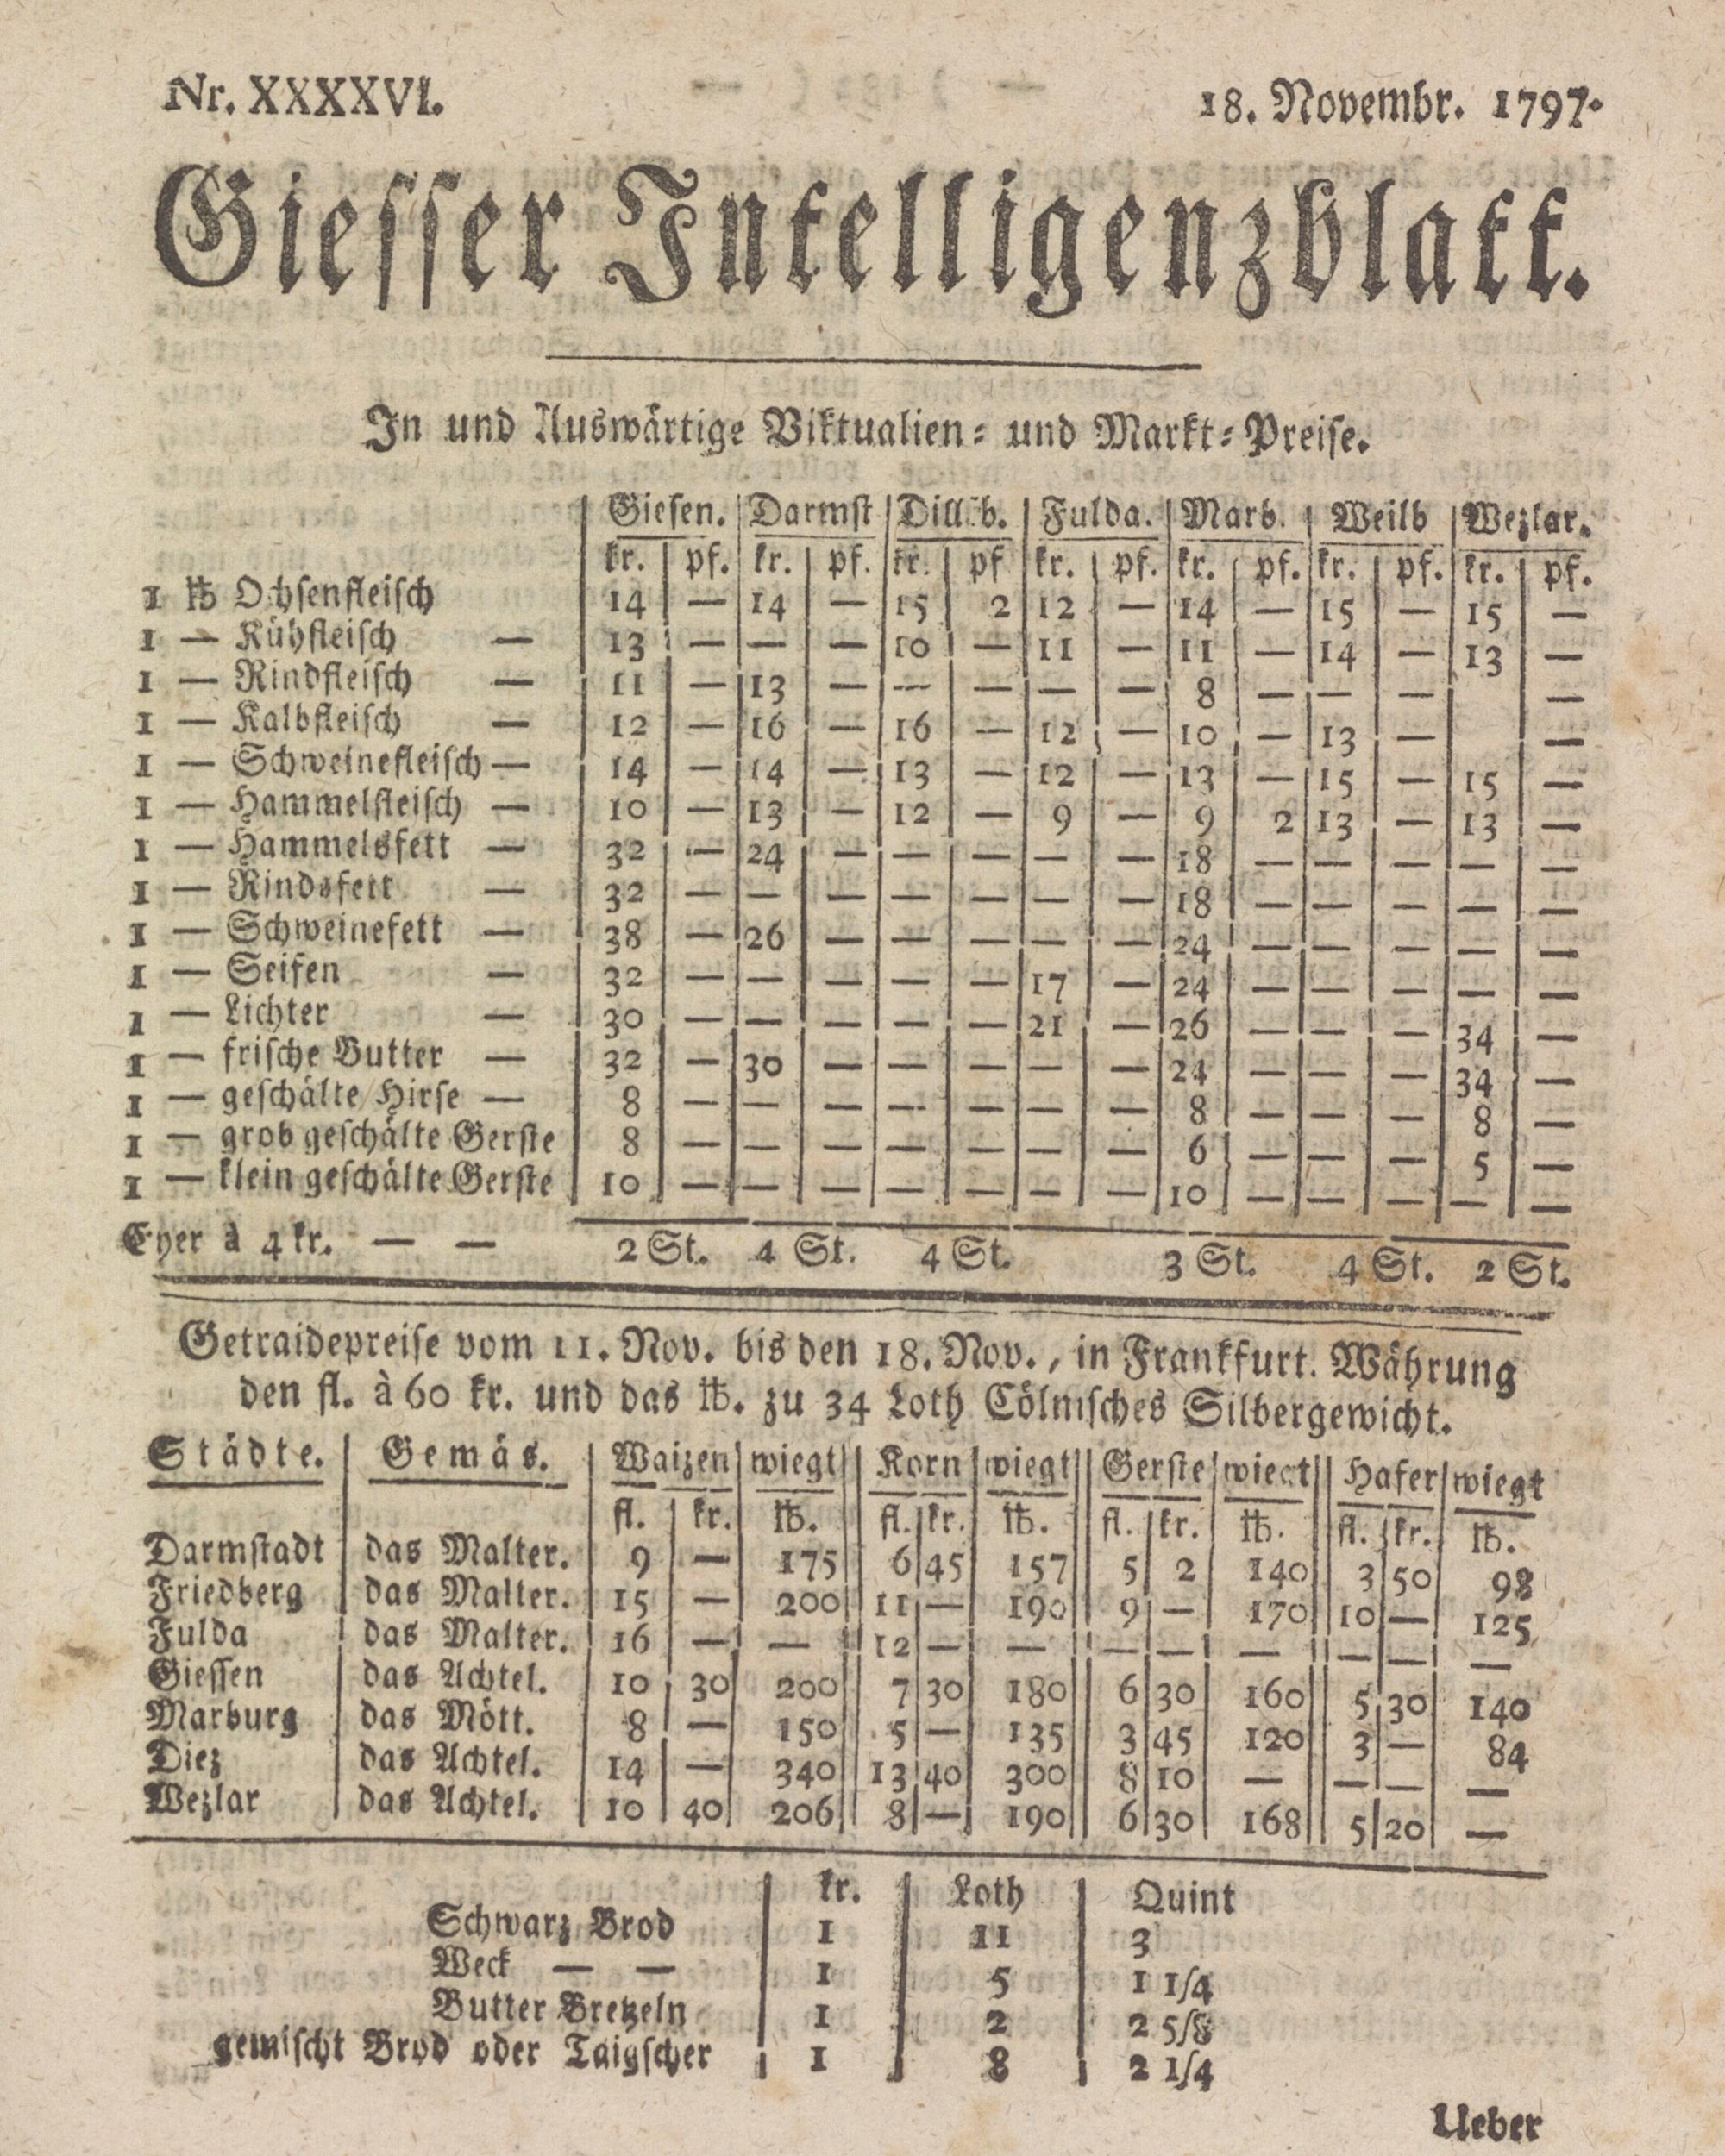 Nr. XXXXVI. 18. Novembr. 1797.
Giesser Intelligenzblatt.
In und Auswärtige Viktualien- und Markt-Preise.
Giesen. | Darmst | Dillb. | Fulda. | Marb. | Weilb | Wezlar.
kr. | pf. | kr. | pf. | kr. | pf | kr. | pf. | kr. | pf. | kr. | pf. | kr. | pf.
1 ℔ Ochsenfleisch 14 — 14 — 15 2 12 — 14 — 15 — 15 —
1 — Kühfleisch — 13 — — — 10 — 11 — 11 — 14 — 13 —
1 — Rindfleisch — 11 — 13 — — — — — 8 — — — —
1 — Kalbfleisch — 12 — 16 — 16 — 12 — 10 — 13 — —
1 — Schweinefleisch — 14 — 14 — 13 — 12 — 13 — 15 — 15 —
1 — Hammelfleisch — 10 — 13 — 12 — 9 — 9 2 13 — 13 —
1 — Hammelsfett — 32 — 24 — — — — — 18 — — — — —
1 — Rindsfett — 32 — — — — — — — 18 — — — — —
1 — Schweinefett — 38 — 26 — — — — — 24 — — — — —
1 — Seifen — 32 — — — — — 17 — 24 — — — — —
1 — Lichter — 30 — — — — — 21 — 26 — — — 34 —
1 — frische Butter — 32 — 30 — — — — — 24 — — — 34 —
1 — geschälte Hirse — 8 — — — — — — — 8 — — — 8 —
1 — grob geschälte Gerste 8 — — — — — — — 6 — — — 5 —
1 — klein geschälte Gerste 10 — — — — — — — 10 — — — — —
Eyer à 4 kr. — — 2 St. 4 St. 4 St. 3 St. 4 St. 2 St.
Getraidepreise vom 11. Nov. bis den 18. Nov., in Frankfurt. Währung
den fl. à 60 kr. und das ℔. zu 34 Loth Cölnisches Silbergewicht.
Städte. | Gemäs. | Waizen | wiegt | Korn | wiegt | Gerste | wiegt | Hafer | wiegt
fl. | kr. | ℔. | fl. | kr. | ℔. | fl. | kr. | ℔. | fl. | kr. | ℔.
Darmstadt | das Malter. 9 — 175 6 45 157 5 2 140 3 50 98
Friedberg | das Malter. 15 — 200 11 — 190 9 — 170 10 — 125
Fulda | das Malter. 16 — — 12 — — — — — — — —
Giessen | das Achtel. 10 30 200 7 30 180 6 30 160 5 30 140
Marburg | das Mött. 8 — 150 5 — 135 3 45 120 3 — 84
Diez | das Achtel. 14 — 340 13 40 300 8 10 — — — —
Wezlar | das Achtel. 10 40 206 8 — 190 6 30 168 5 20 —
kr. | Loth | Quint
Schwarz Brod 1 11 3
Weck — — 1 5 1 1/4
Butter Bretzeln 1 2 2 5/8
gemischt Brod oder Taigscher 1 8 2 1/4
Ueber